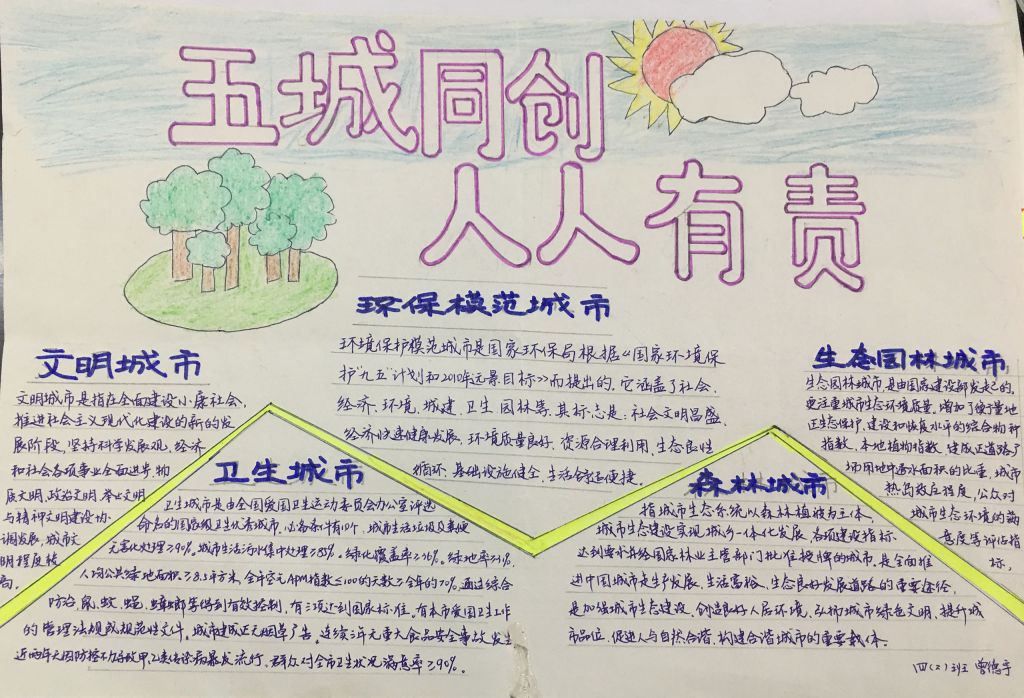 五城同创
人人有责
环保模范城市
环境保护模范城市是国家环保局根据《国家环境保
护"九五"计划和2010年远景目标》而提出的。它涵盖了社会、
经济、环境、城建、卫生、园林等。其标志是：社会文明昌盛，
经济快速健康发展，环境质量良好，资源合理利用，生态良性
循环，基础设施健全，生活舒适便捷。
文明城市
文明城市是指在全面建设小康社会，
推进社会主义现代化建设的新的发
展阶段，坚持科学发展观，经济
和社会各项事业全面进步，物
质文明、政治文明
与精神文明建设协
调发展，城市文
明程度较
高。
卫生城市
卫生城市是由全国爱国卫生运动委员会办公室评选
命名的国家级卫生优秀城市，必备条件有10个，城市生活垃圾及粪便
无害化处理≥90%，城市生活污水集中处理≥85%，绿化覆盖率≥36%，绿地率≥31%，
人均公共绿地面积≥8.5平方米，全年空气API指数≤100的天数≥全年的70%，通过综合
防治，鼠、蚊、蝇、蟑螂等得到有效控制，有三项达到国家标准，有本市爱国卫生工作
的管理法规或规范性文件，城市建成区无烟草广告，连续三年无重大食品安全事故发生
近两年无因防控不力导致甲、乙类传染病暴发流行，群众对全市卫生状况满意率≥90%。
生态园林城市
生态园林城市，是由国家建设部发起的，
更注重城市生态环境质量，增加了衡量地
区生态保护、建设和恢复水平的综合物种
指数、本地植物指数、建成区道路广
场用地中透水面积的比重、城市
热岛效应程度、公众对
城市生态环境的满
意度等评估指
标。
森林城市
指城市生态系统以森林植被为主体，
城市生态建设实现城乡一体化发展，各项建设指标
达到要求并经国家林业主管部门批准授牌的城市。是全面推
进中国城市走生产发展、生活富裕、生态良好发展道路的重要途径，
是加强城市生态建设，创造良好人居环境，弘扬城市绿色文明，提升城
市品位，促进人与自然合谐，构建合谐城市的重要载体。
四(2)班 曾德宇